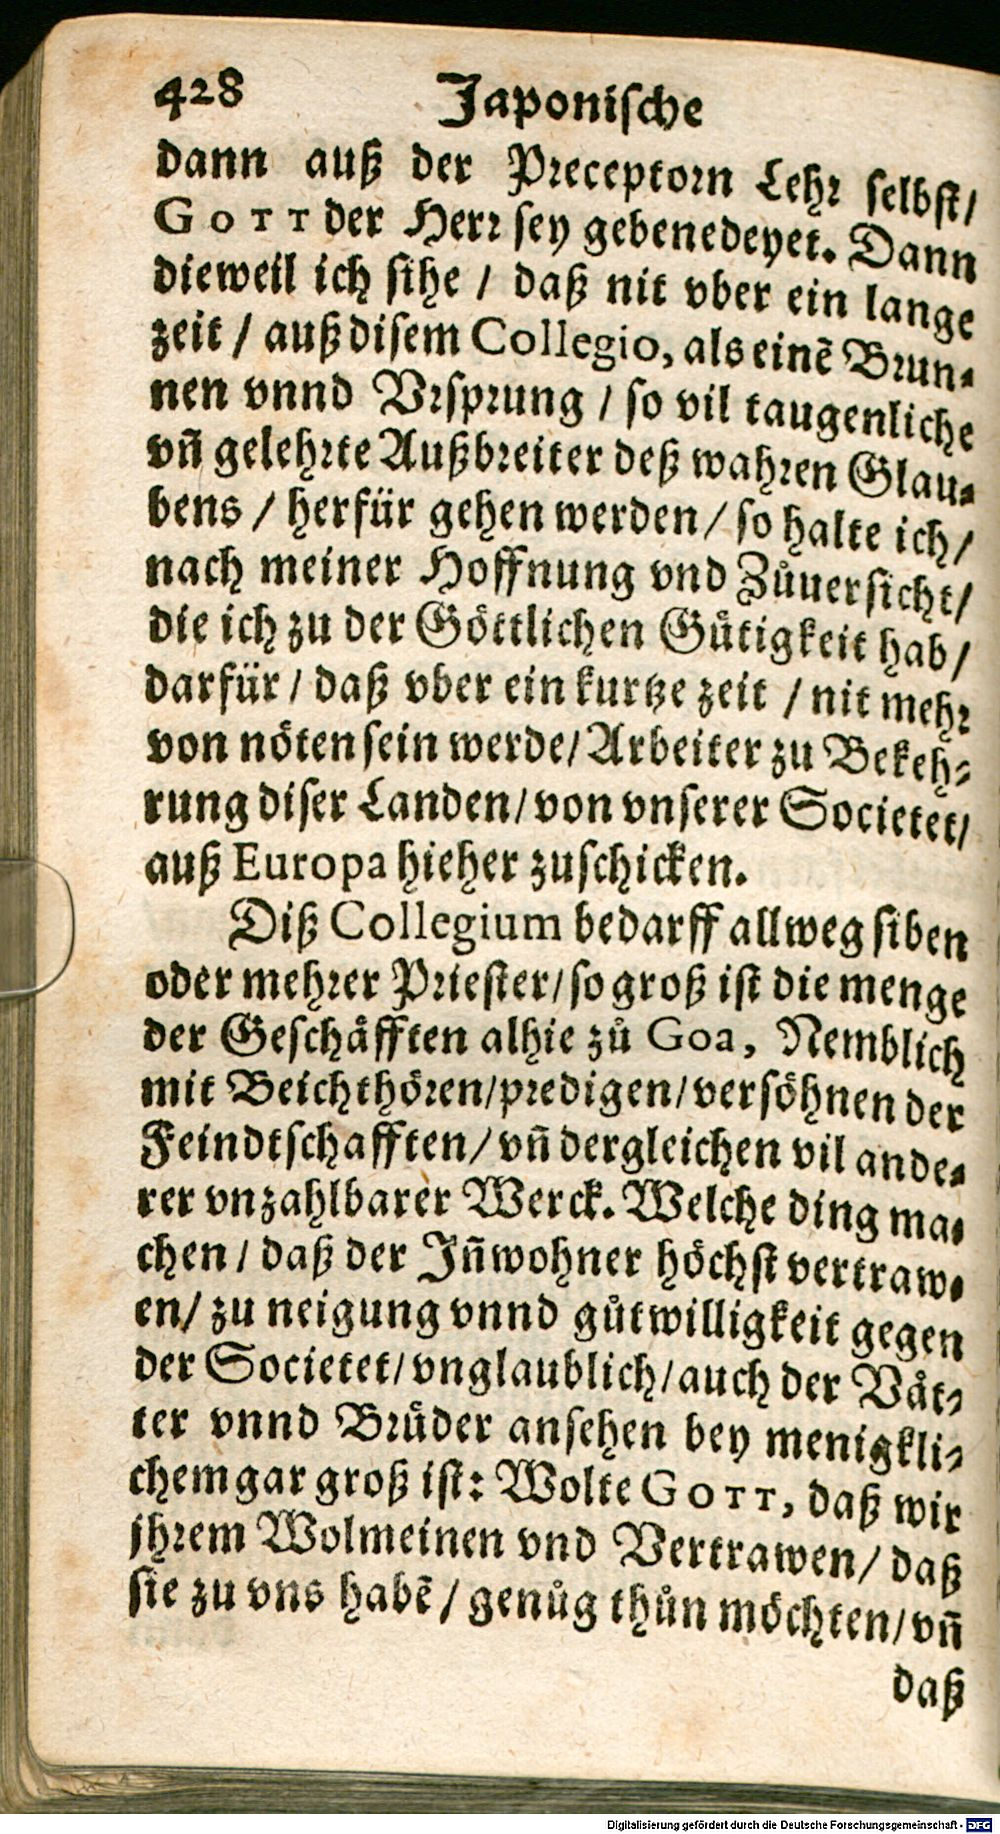 428 Japonische
dann auß der Preceptorn Lehr selbst/
GOTT der Herr sey gebenedeyet. Dann
dieweil ich sihe / daß nit vber ein lange
zeit / auß disem Collegio, als einẽ Brun-
nen vnnd Vrsprung / so vil taugenliche
vñ gelehrte Außbreiter deß wahren Glau-
bens / herfür gehen werden / so halte ich /
nach meiner Hoffnung vnd Zůuersicht/
die ich zu der Göttlichen Gůtigkeit hab /
darfür / daß vber ein kurtze zeit / nit mehr
von nöten sein werde/ Arbeiter zu Bekeh-
rung diser Landen/ von vnserer Societet/
auß Europa hieher zuschicken.
Diß Collegium bedarff allweg siben
oder mehrer Priester/ so groß ist die menge
der Geschäfften alhie zů Goa, Nemblich
mit Beichthören/predigen/versöhnen der
Feindtschafften/ vñ dergleichen vil ande-
rer vnzahlbarer Werck. Welche ding ma-
chen / daß der Jñwohner höchst vertraw-
en/ zu neigung vnnd gůtwilligkeit gegen
der Societet/ vnglaublich/ auch der Våt-
ter vnnd Brůder ansehen bey menigkli-
chem gar groß ist: Wolte GOTT, daß wir
jhrem Wolmeinen vnd Vertrawen/ daß
sie zu vns habẽ / genůg thůn möchten/ vñ
daß
Digitalisierung gefördert durch die Deutsche Forschungsgemeinschaft - DFG